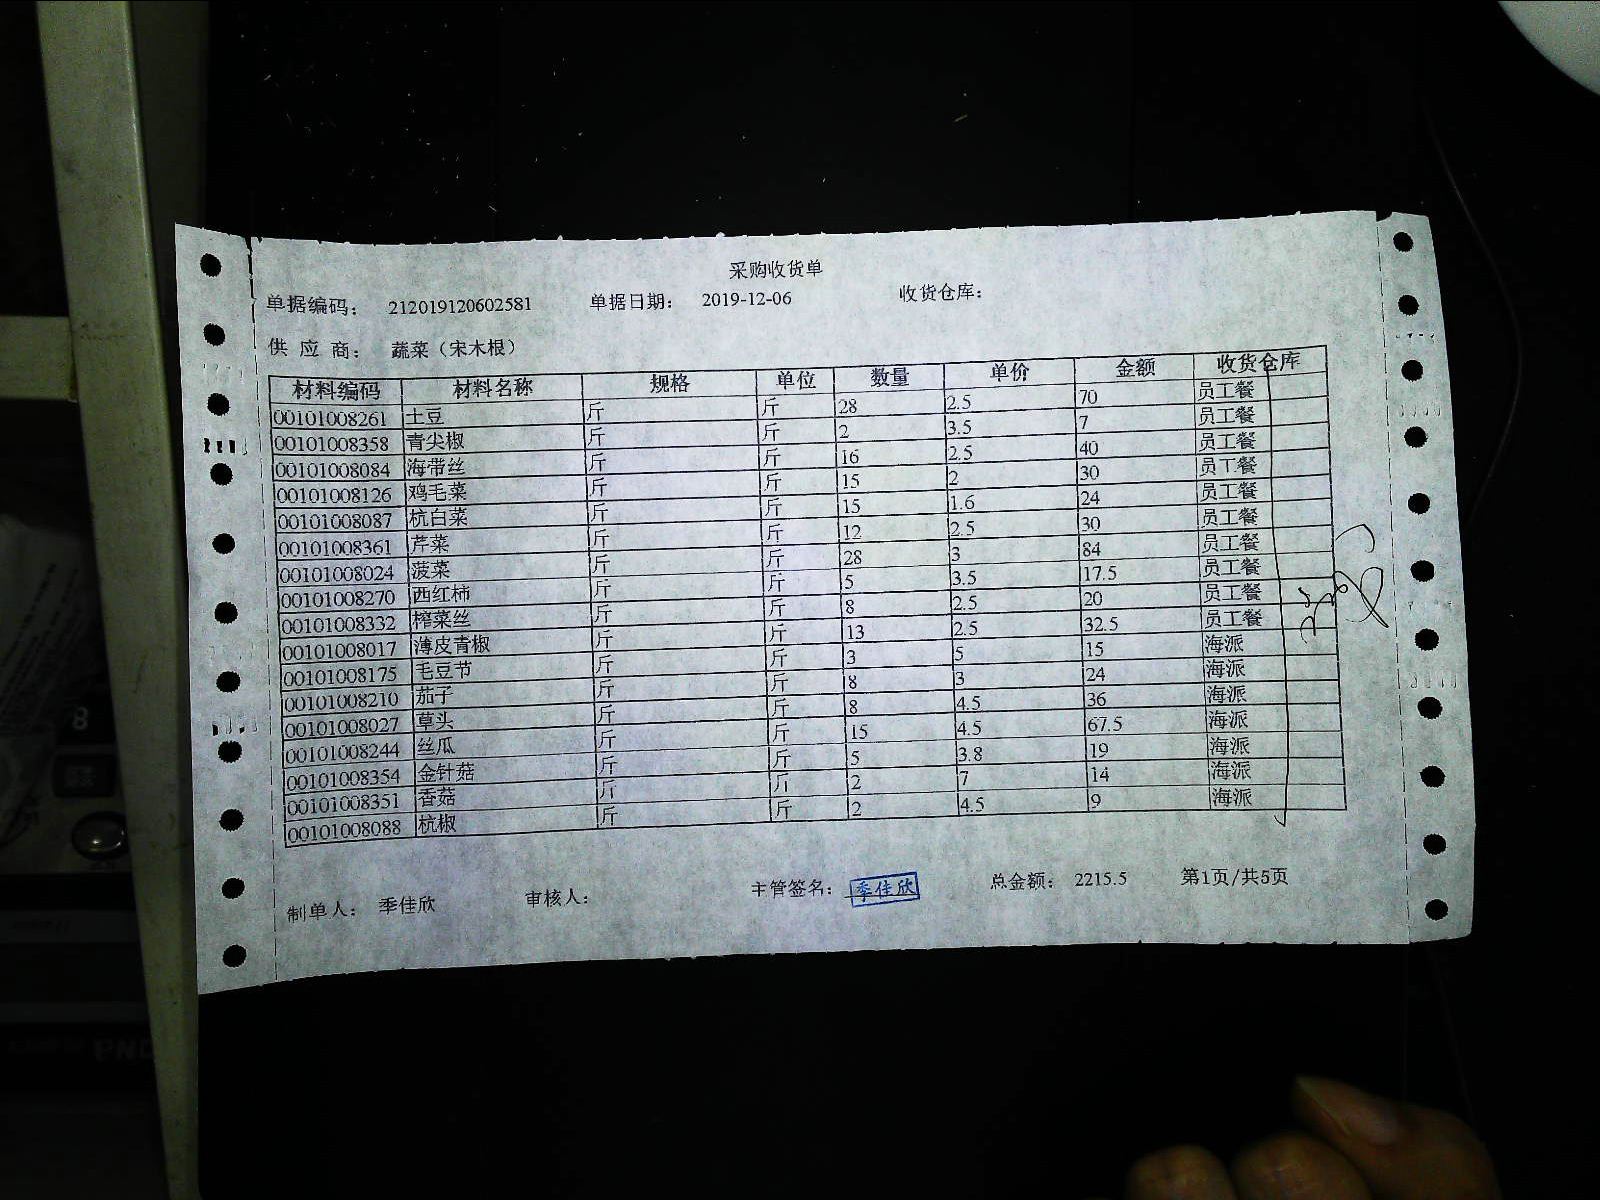 采购收货单
单据编码： 212019120602581 单据日期： 2019-12-06 收货仓库：
供 应 商： 蔬菜（宋木根）
材料编码 材料名称 规格 单位 数量 单价 金额 收货仓库
00101008261 土豆 斤 斤 28 2.5 70 员工餐
00101008358 青尖椒 斤 斤 2 3.5 7 员工餐
00101008084 海带丝 斤 斤 16 2.5 40 员工餐
00101008126 鸡毛菜 斤 斤 15 2 30 员工餐
00101008087 杭白菜 斤 斤 15 1.6 24 员工餐
00101008361 芹菜 斤 斤 12 2.5 30 员工餐
00101008024 菠菜 斤 斤 28 3 84 员工餐
00101008270 西红柿 斤 斤 5 3.5 17.5 员工餐
00101008332 榨菜丝 斤 斤 8 2.5 20 员工餐
00101008017 薄皮青椒 斤 斤 13 2.5 32.5 员工餐
00101008175 毛豆节 斤 斤 3 5 15 海派
00101008210 茄子 斤 斤 8 3 24 海派
00101008027 草头 斤 斤 8 4.5 36 海派
00101008244 丝瓜 斤 斤 15 4.5 67.5 海派
00101008354 金针菇 斤 斤 5 3.8 19 海派
00101008351 香菇 斤 斤 2 7 14 海派
00101008088 杭椒 斤 斤 2 4.5 9 海派
制单人： 季佳欣 审核人： 主管签名： 季佳欣 总金额： 2215.5 第1页/共5页